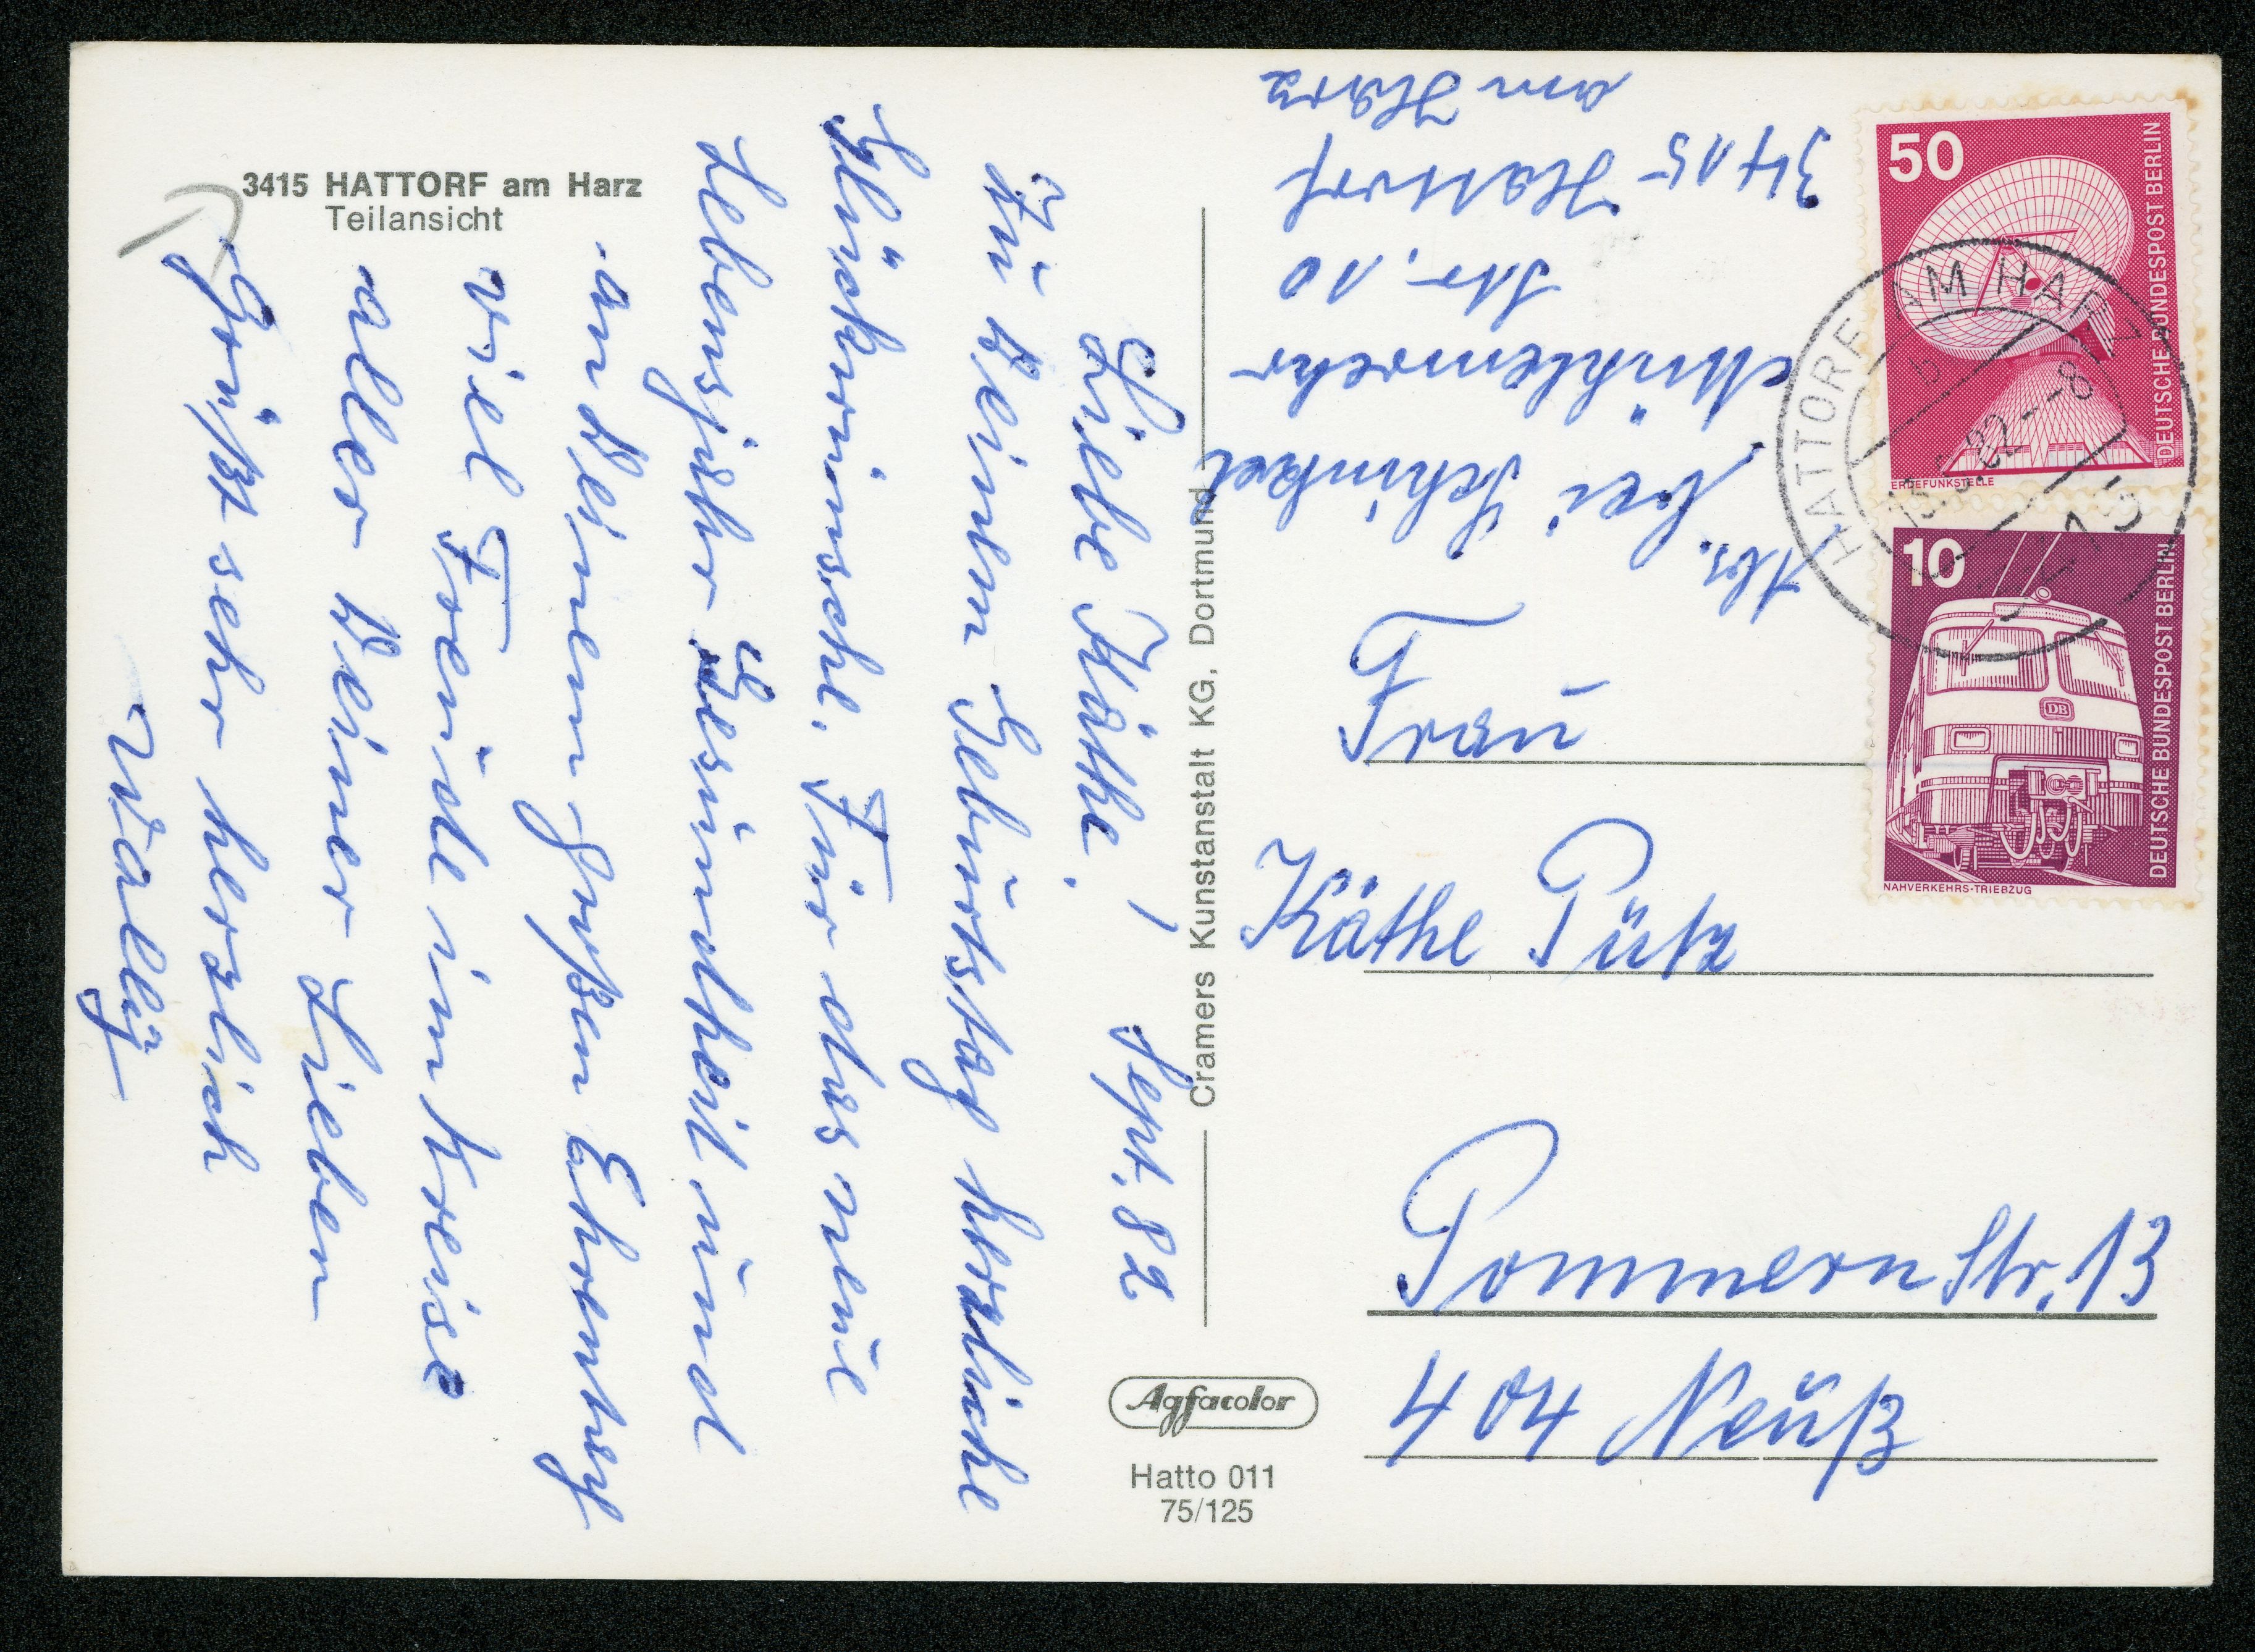 3415 HATTORF am Harz
Teilansicht
Liebe Käthe! Sept. 82
Zu Deinem Geburtstag herzliche
Glückwünsche. Für das neue
Lebensjahr Gesundheit und
an Deinem großen Ehrentag
viel Freude im Kreise
aller Deiner Lieben
Grüßt sehr herzlich
Wally
Cramers Kunstanstalt KG, Dortmund
Agfacolor
Hatto 011
75/125
Abs. bei Schinkel
Mühlenwehr
Str. 10
3415 Hattorf
am Harz
Frau
Käthe Pütz
Pommernstr. 13
404 Neuß
50
DEUTSCHE BUNDESPOST BERLIN
ERDEFUNKSTELLE
10
DEUTSCHE BUNDESPOST BERLIN
NAHVERKEHRS-TRIEBZUG
DB
HATTORF AM HARZ
b
82--8